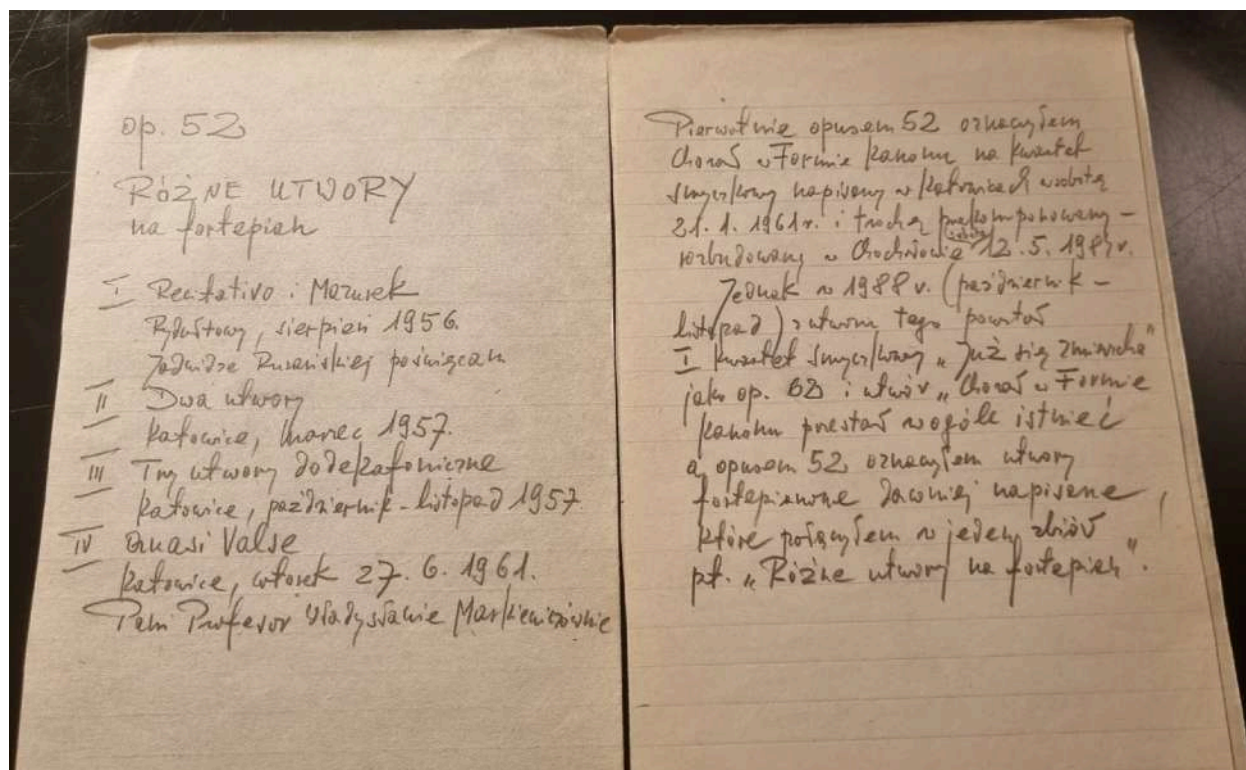 op. 52
RÓŻNE UTWORY
na fortepian
I Recitativo i Mazurek
Rydułtowy, sierpień 1956.
Jadwidze Rurańskiej poświęcam
II Dwa utwory
Katowice, marzec 1957.
III Trzy utwory dodekafoniczne
Katowice, październik - listopad 1957
IV Quasi Valse
Katowice, wtorek 27. 6. 1961.
Pani Profesor Władysławie Markiewiczównie
Pierwotnie opusem 52 oznaczyłem
Chorał w Formie Kanonu na kwartet
smyczkowy napisany w Katowicach w sobotę
21. 1. 1961r. i trochę przekomponowany -
rozbudowany w Chochołowie sobota 12. 5. 1984r.
Jednak w 1988 r. (październik -
listopad) z utworu tego powstał
I kwartet smyczkowy „Już się zmierzcha"
jako op. 62 i utwór „Chorał w Formie
Kanonu przestał wogóle istnieć
a opusem 52 oznaczyłem utwory
fortepianowe dawniej napisane,
które połączyłem w jeden zbiór
pt. „Różne utwory na fortepian".